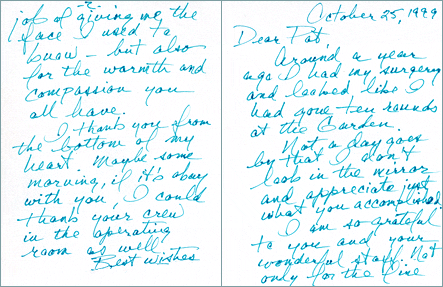 October 25, 1999
Dear Pat,
Around a year
ago I had my surgery
and learned like I
had gone ten rounds
at the Garden.
Not a day goes
by that I don't
look in the mirror
and appreciate just
what you accomplished.
I am so grateful
to you and your
wonderful staff. Not
only for the fine
-2-
job of giving me the
face I used to
know - but also
for the warmth and
compassion you
all have.
I thank you from
the bottom of my
heart. Maybe some
morning, if it's okay
with you, I could
thank your crew
in the operating
room as well
Best wishes